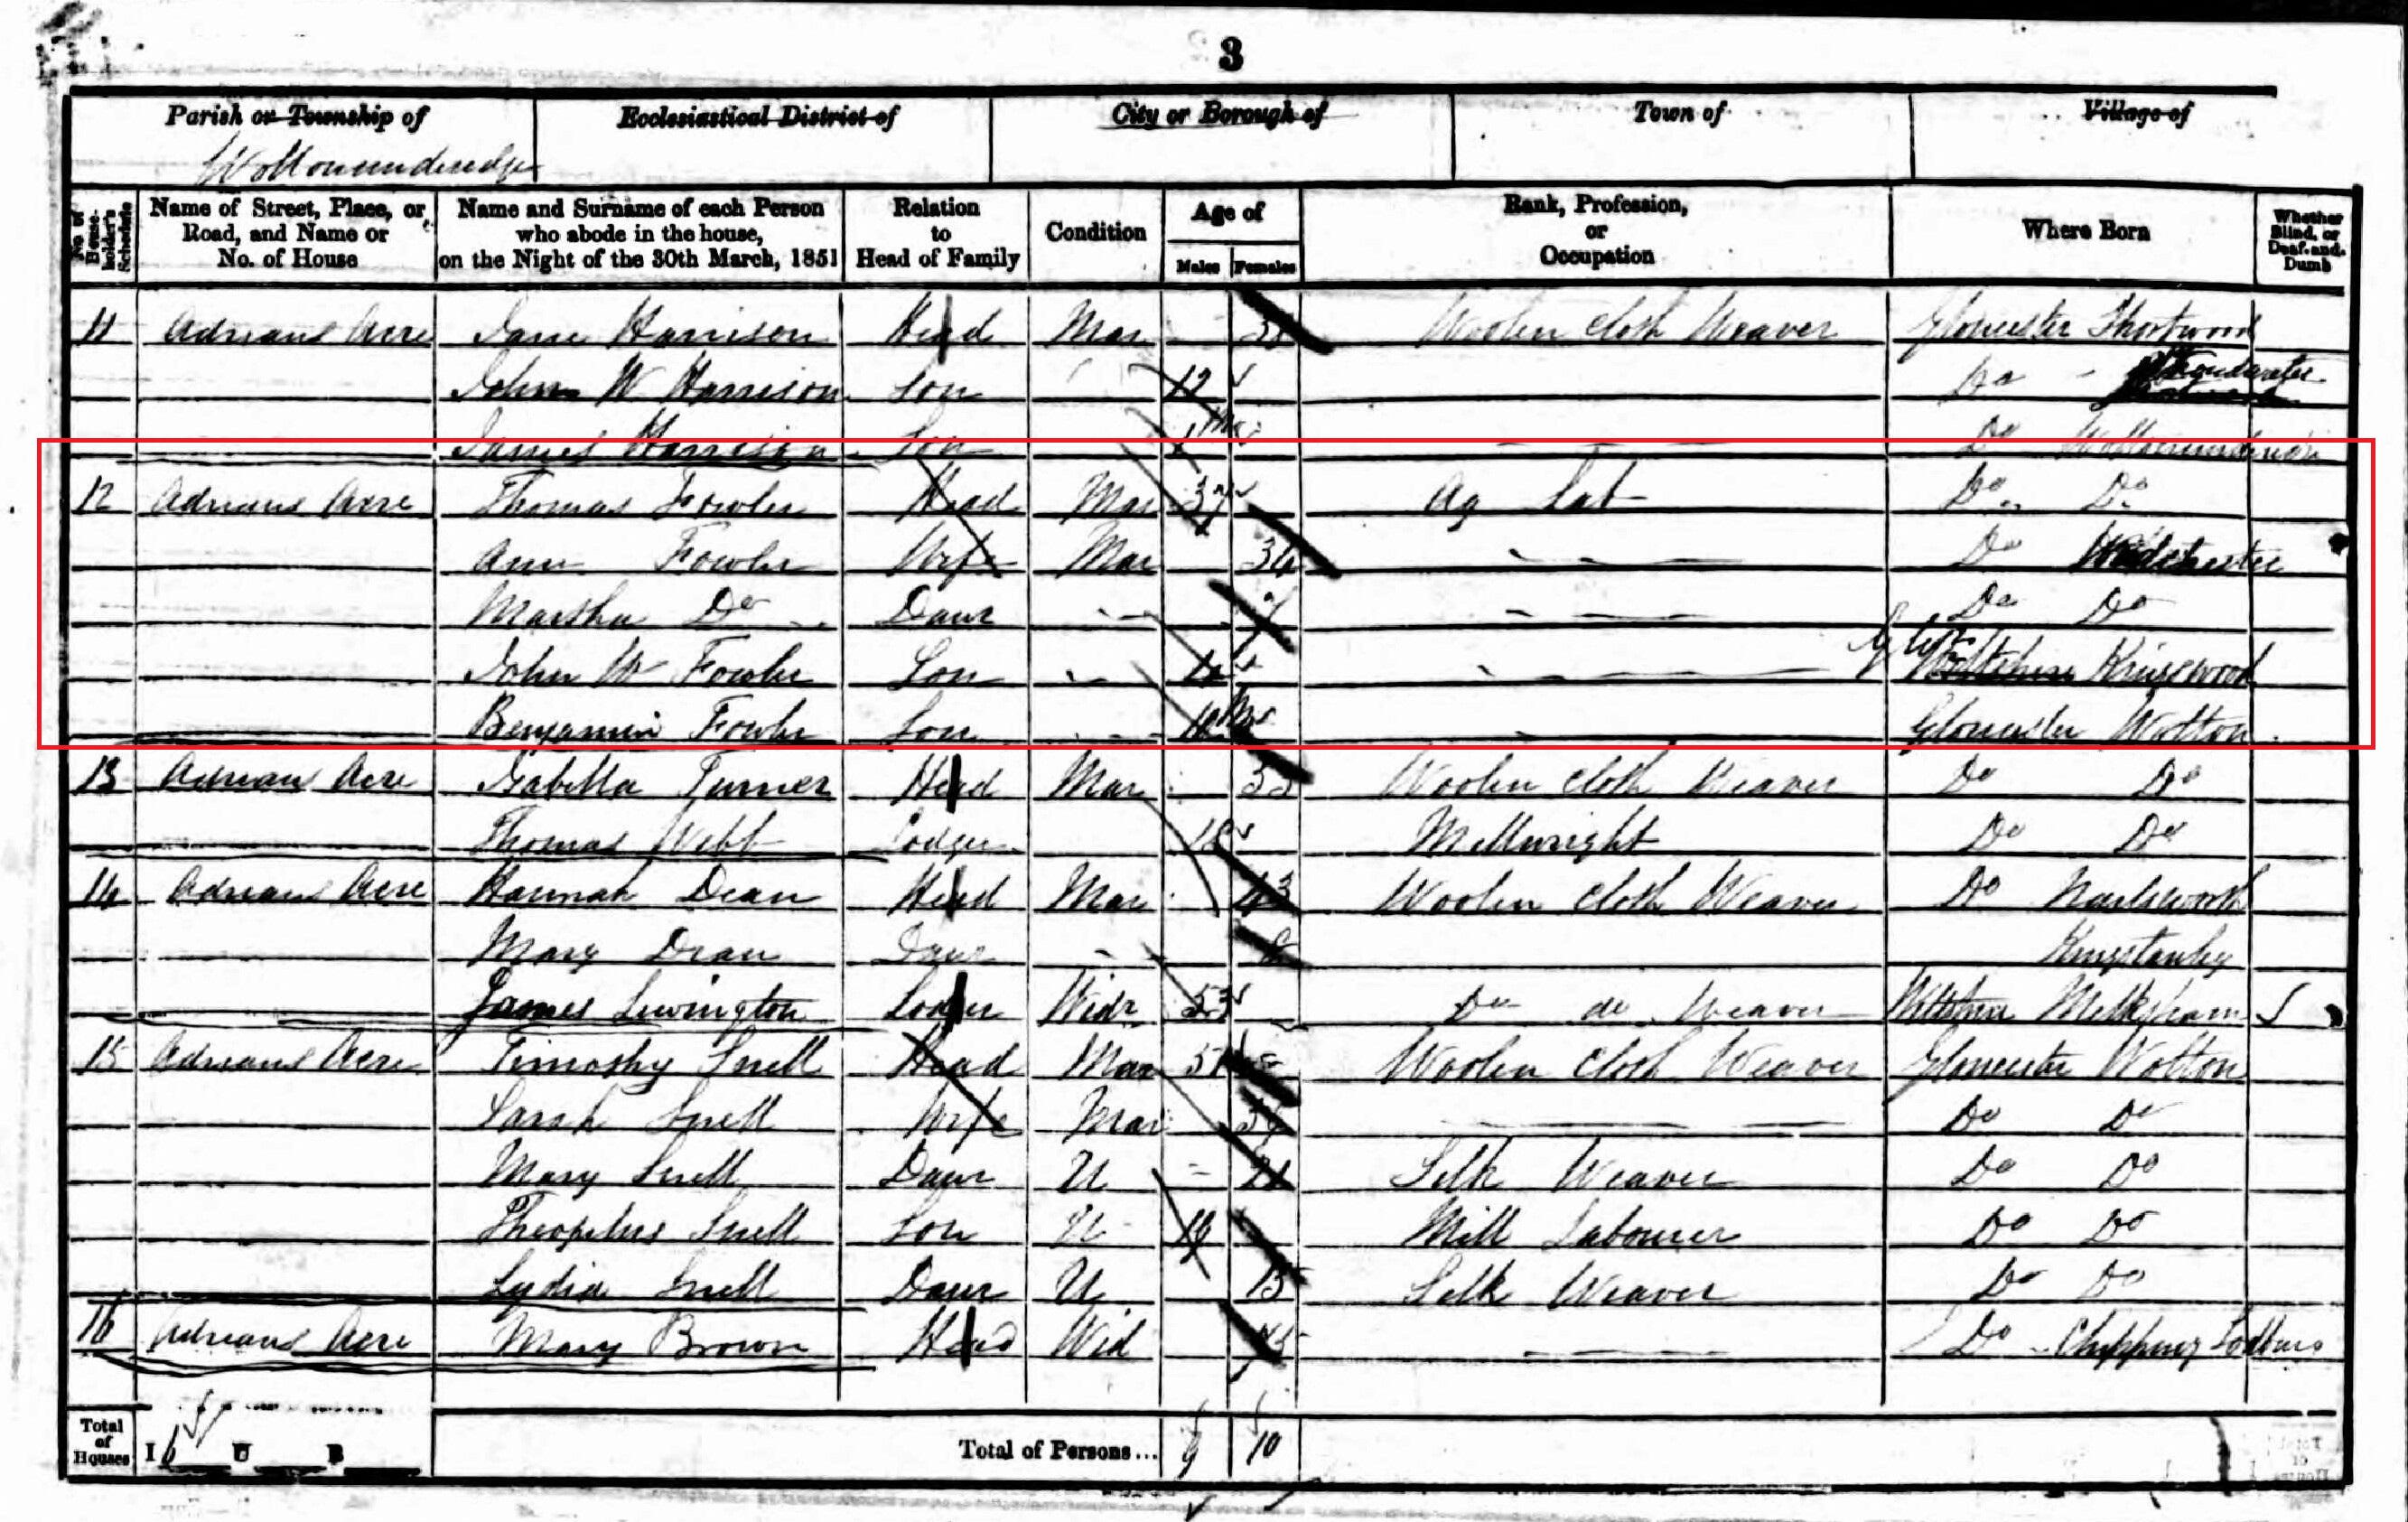 3
Parish or Township of Ecclesiastical District of City or Borough of Town of Village of
Wottonunderedge
No. of House-holder's Schedule Name of Street, Place, or Road, and Name or No. of House Name and Surname of each Person who abode in the house, on the Night of the 30th March, 1851 Relation to Head of Family Condition Age of Males Females Rank, Profession, or Occupation Where Born Whether Blind, or Deaf-and-Dumb
11 Adrians Acre Jane Harrison Head Mar Woolen Cloth Weaver Gloucester Shortwood
John W Harrison Son 12 Do
James Harrison Son 1 Mo Do Wottonunderedge
12 Adrians Acre Thomas Fowler Head Mar 37 Ag Lab Do Do
Ann Fowler Wife Mar 34 Do
Martha Do Daur 7 Do Do
John W Fowler Son Wiltshire Kingswood
Benjamin Fowler Son 10 Mo Gloucester Wotton
13 Adrians Acre Isabella Turner Head Mar Woolen Cloth Weaver Do Do
Thomas Webb Lodger 18 Millwright Do Do
14 Adrians Acre Hannah Dean Head Mar 43 Woolen Cloth Weaver Do Nailsworth
Mary Dean Daur Kingstanley
James Lewington Lodger Widr 53 Do do Weaver Wiltshire Melksham
15 Adrians Acre Timothy Snell Head Mar Woolen Cloth Weaver Gloucester Wotton
Sarah Snell Wife Mar Do Do
Mary Snell Daur U 21 Silk Weaver Do Do
Theophilus Snell Son U Mill Labourer Do Do
Lydia Snell Daur U 15 Silk Weaver Do Do
16 Adrians Acre Mary Brown Head Wid Do Chipping Sodbury
Total of Houses I 6 U B Total of Persons... 9 10